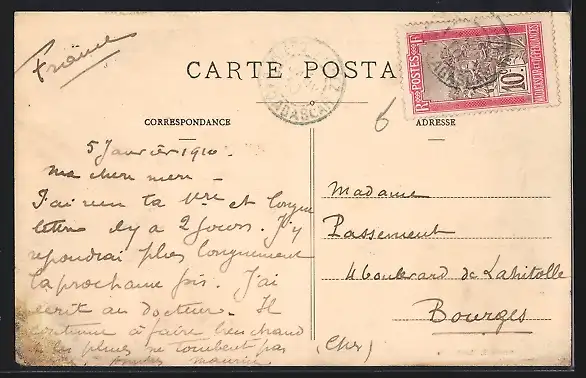 France
CARTE POSTA
POSTES
RF
10
MADAGASCAR ET DÉPENDANCES
MADAGASCAR
CORRESPONDANCE
ADRESSE
6
5 Janvier 1910.
Ma chère mère –
J'ai reçu ta 1ère et longue
lettre il y a 2 jours. J'y
répondrai plus longuement
la prochaine fois. J'ai
écrit au docteur. Il
continue à faire bien chaud
les pluies ne tombent pas
Maurice
Madame
Passement
4 boulevard de Lahitolle
Bourges
(Cher)